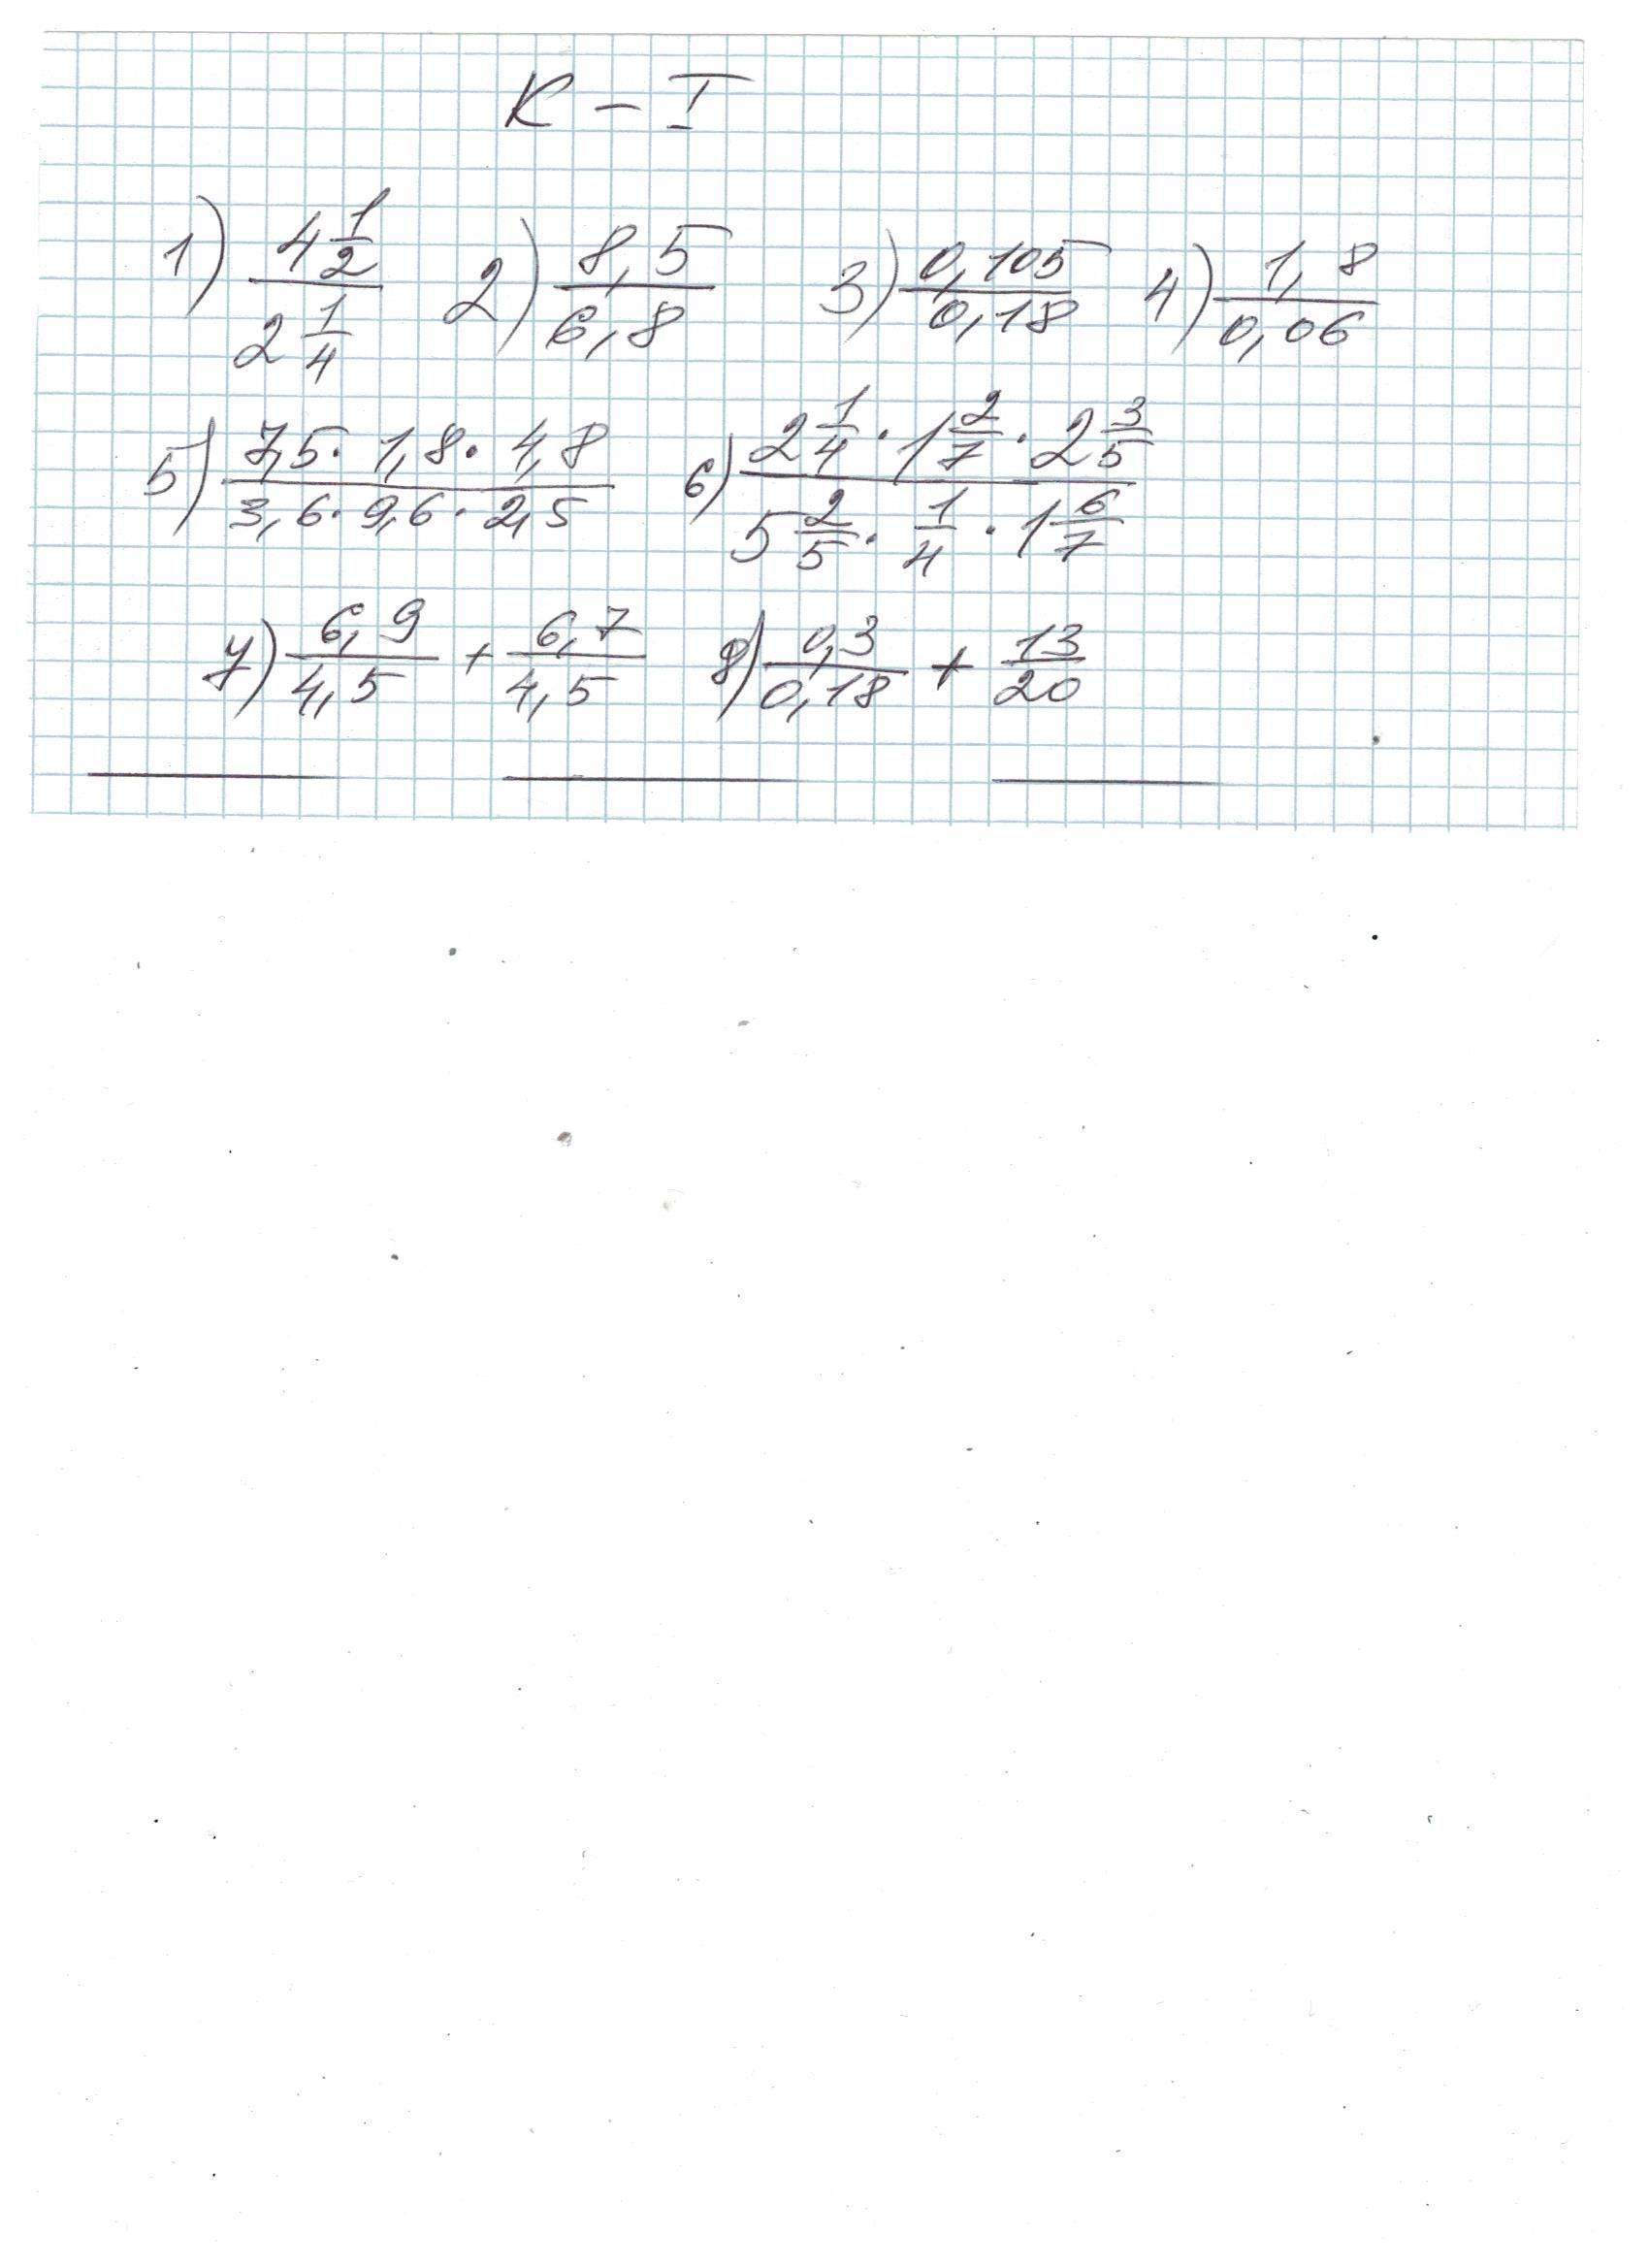 К – I
1) 4 1/2 / 2 1/4 2) 8,5 / 6,8 3) 0,105 / 0,18 4) 1,8 / 0,06
5) 7,5 · 1,8 · 4,8 / 3,6 · 9,6 · 2,5 6) 2 1/4 · 1 2/7 · 2 3/5 / 5 2/5 · 1/4 · 1 6/7
7) 6,9 / 4,5 + 6,7 / 4,5 8) 0,3 / 0,18 + 13/20